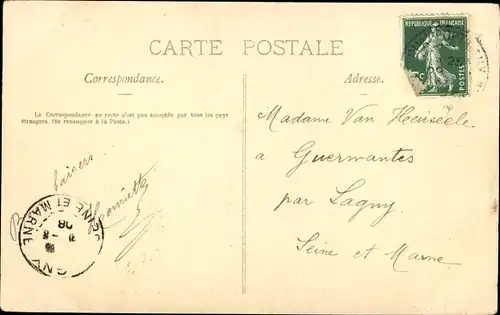 CARTE POSTALE
Correspondance.
La Correspondance au recto n'est pas acceptée par tous les pays
étrangers. (Se renseigner à la Poste.)
baisers
Henriette
SEINE ET MARNE
08
GNY
Adresse.
REPUBLIQUE FRANÇAISE
5c
POSTES
Madame Van Heuseele
a Guermantes
par Lagny
Seine et Marne